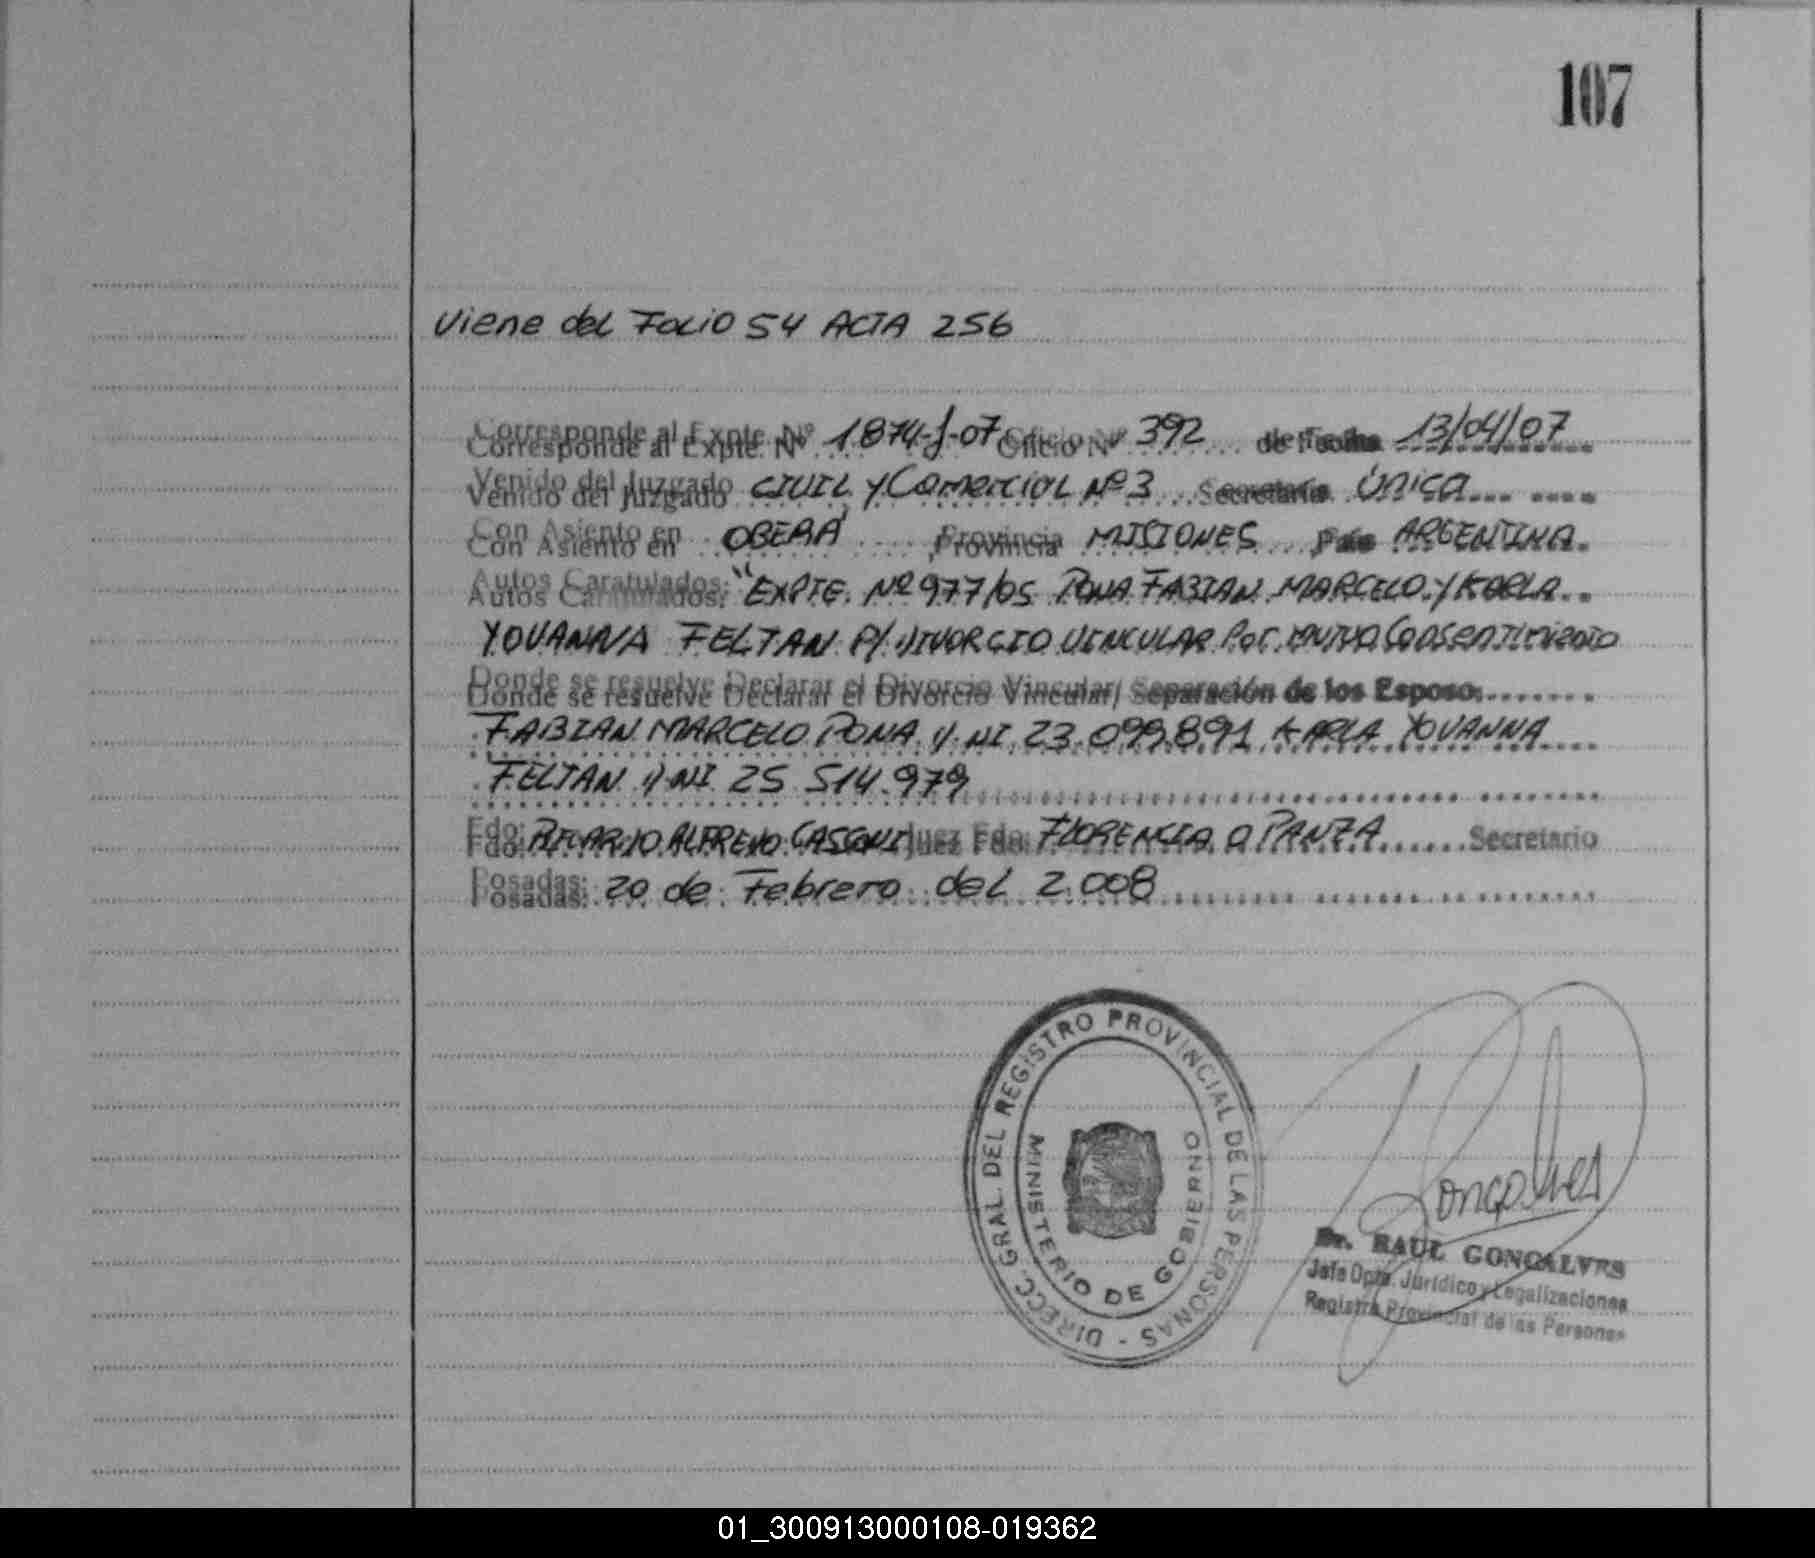 107
Viene del Folio 54 ACTA 256
Corresponde al Expte. Nº 1874-J-07 Oficio Nº 392 de Fecha 13/04/07
Venido del Juzgado CIVIL y Comercial Nº 3 Secretaria Única
Con Asiento en OBERÁ Provincia MISIONES País ARGENTINA.
Autos Caratulados: "EXPTE. Nº 977/05 PONA FABIAN MARCELO y KARLA
YOVANNA FELTAN P/ DIVORCIO VINCULAR Por MUTUO Consentimiento
Donde se resuelve Declarar el Divorcio Vincular/ Separación de los Esposo:
FABIAN MARCELO PONA DNI 23.099.891 KARLA YOVANNA
FELTAN DNI 25 514.979
Fdo: RICARDO ALFREDO CASCONI Juez Fdo: FLORENCIA O PANZA Secretario
Posadas: 20 de Febrero del 2.008
DIRECC. GRAL. DEL REGISTRO PROVINCIAL DE LAS PERSONAS -
MINISTERIO DE GOBIERNO
Goncalves
Dr. RAUL GONCALVES
Jefe Dpto. Jurídico y Legalizaciones
Registro Provincial de las Personas
01_300913000108-019362